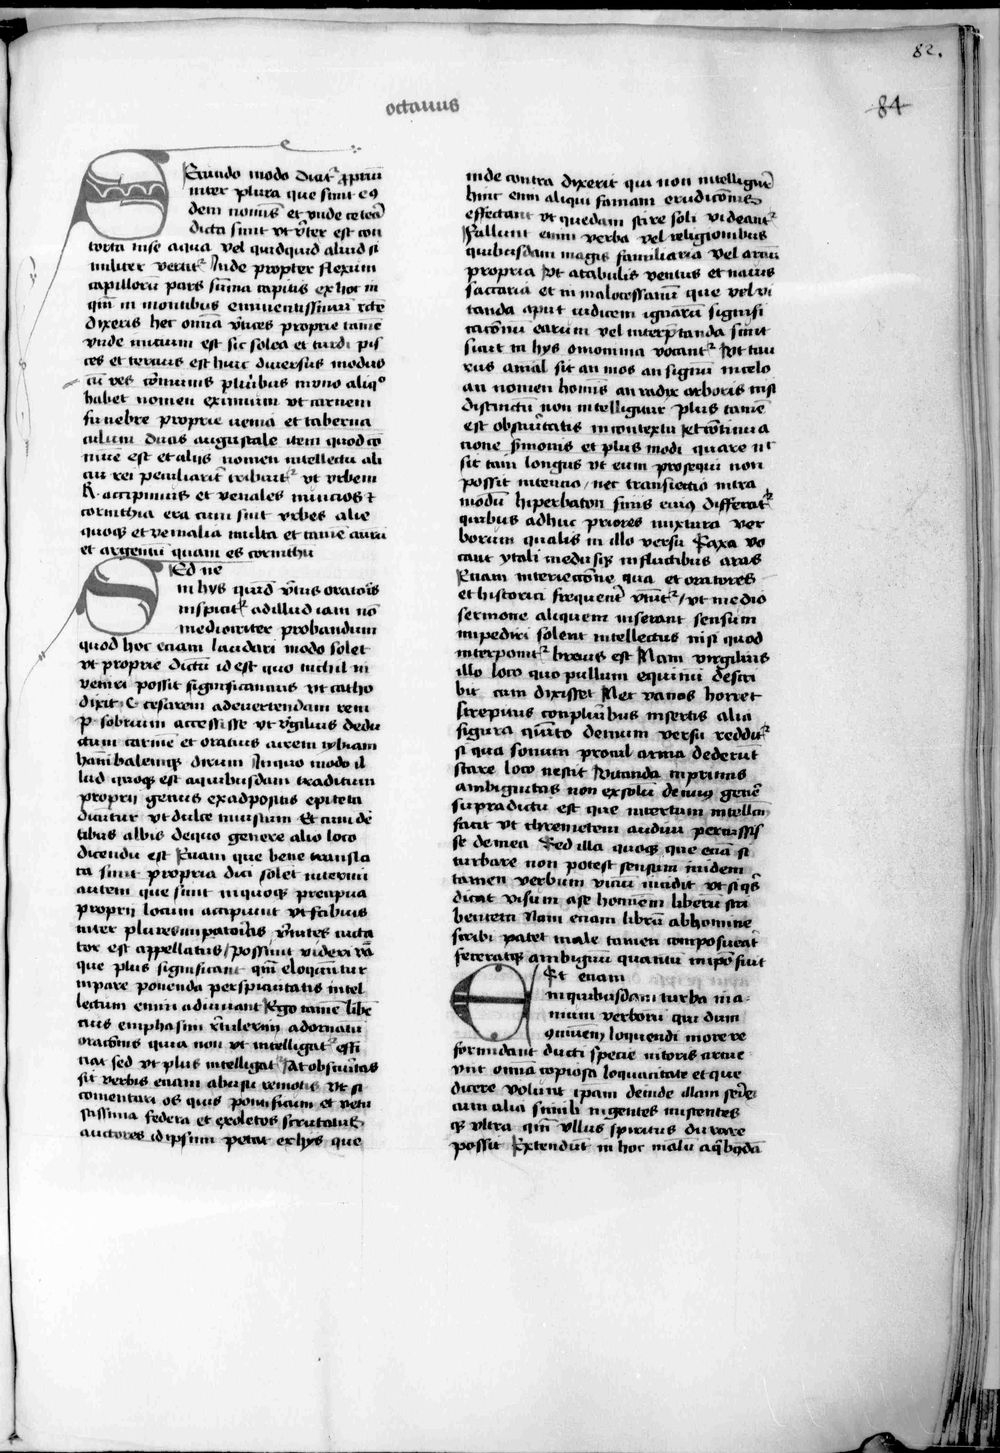 82.
octauus
84
Secundo modo dicit᷑ ꝓpriū
inter plura que sunt eꝰ
dem nominis et vnde cetera
dicta sunt vt v̓tex est con
torta inse aqua vel quidquid aliud si
militer vertit᷑ Inde propter flexum
capillorū pars suma capitis ex hoc in
qm̄ in montibus eminentissimū recte
dixeris hec omnia v̓tices proprie tamē
vnde inicium est sic solea et turdi pis
ces et tercius est huic diuersus modus
cū res cōmunis plurībus in vno aliqͦ
habet nomen eximium vt carmen
funebre proprie nenia et taberna
culum ducis augustale item quod cō
mune est et alijs nomen intellectu ali
cui rei peculiarit̓ tribuit᷑ vt vrbem
R. accipimus et venales nuncios ⁊
corinthia era cum sint vrbes alie
quoqꝫ et venialia multa et tamē aurū
et argentū quam es corinthū
Sed ne
in hys quid̄ v̓tus oratoris
inspicit᷑ ad illud iam nō
mediocriter probandum
quod hoc etiam laudari modo solet
vt proprie dictū id est quo nichil in
veniri possit significantius vt catho
dixit C cesarem ad euertendam rem
p. sobrium accessisse vt v̓gilius dedu
ctum carmē et oratius acrem tybiam
hānibalemqꝫ dirum In quo modo il
lud quoqꝫ est a quibusdam traditum
proprii genus ex adpositis epiteta
dicitur vt dulce mustum Et cum dē
tibus albis de quo genere alio loco
dicendū est Etiam que bene transla
ta sunt propria dici solet interim
autem que sunt in quoqꝫ precipua
proprii locum accipiunt vt fabius
inter plures impatorīas v̓tutes cūcta
tor est appellatus / possunt videri vā
que plus significant qm̄ eloquntur
in pare ponenda perspicuitatis intel
lectum enim adiuuant Ego tamē libē
cius emphasim retulerim ad ornatū
oratiōnis quia non vt intelligat᷑ effi
ciat sed vt plus intelligat᷑ At obscur̄itas
fit verbis etiam ab usu remotis vt si
comentari os quis pontificum et vetu
stissima federa et exoletos scrutatus
auctores id ipsum petat ex hys que
inde contra dixerit qui non intelligūt̓
hinc enim aliqui famam erudicōnis
effectant vt quedam scire soli videant᷑
Fallunt enim verba vel religionibus
quibusdam magis familiaria vel artiū
propria Vt atabulis ventus et nauis
saccaria et in malo cossanū que vel vi
tanda aput iudicem ignarū signifi
cacōnū earum vel interp̄tanda sunt
sicut in hys omonima vocant᷑ Vt tau
rus amal sit an mos an signū in celo
an nomen hominis an radix arboris nisi
distinctū non intelligitur plus tamē
est obscur̄itatis in contextu et cōtinua
cione s̄monis et plus modi quare nͭ
sit tam longus vt eum prosequi non
possit intencio / nec transiectio intra
modū hiperbaton finis eiꝰ differat᷑
quibus adhuc priores mixtura ver
borum qualis in illo versu Saxa vo
cant ytali medijsqꝫ in fluctibus aras
Etiam interiectōne qua et oratores
et historici frequent̓ vtūt᷑ / vt medio
sermone aliquem inserant sensum
impediri solent intellectus nisi quod
interponit᷑ breuis est Nam virgilius
illo loco quo pullum equinū descri
bit cum dixisset Nec vanos horret
strepitus conplurībus insertis alia
figura quīto demum versu reddit᷑
si qua sonum procul arma dederūt
stare loco nescit Vitanda in primis
ambiguitas non ex solū de cuiꝰ genē
supra dictū est que incertum intellectū
facit vt chremetem audiui percussis
se demea Sed illa quoqꝫ que etiā si
turbare non potest sensum in idem
tamen verbum viciū incidit vt si qͥs
dicat visum a se hominem librū scri
bentem Nam etiam librū ab homine
scribi patet male tamen composuerat
feceratqꝫ ambiguū quantū in ipō fuit
Est etiam
in quibusdam turba ina-
nium verborū qui dum
cōmunem loquendi morē re
formidant ducti specie nitoris circue
unt omnia copiosa loquacitate et que
dicere volunt ipam deinde illam seriē
cum alia simili iugentes miscentes
qꝫ vltra qm̄ vllus spiritus durare
possit Extendūt in hoc malū a q̄bꝰdā